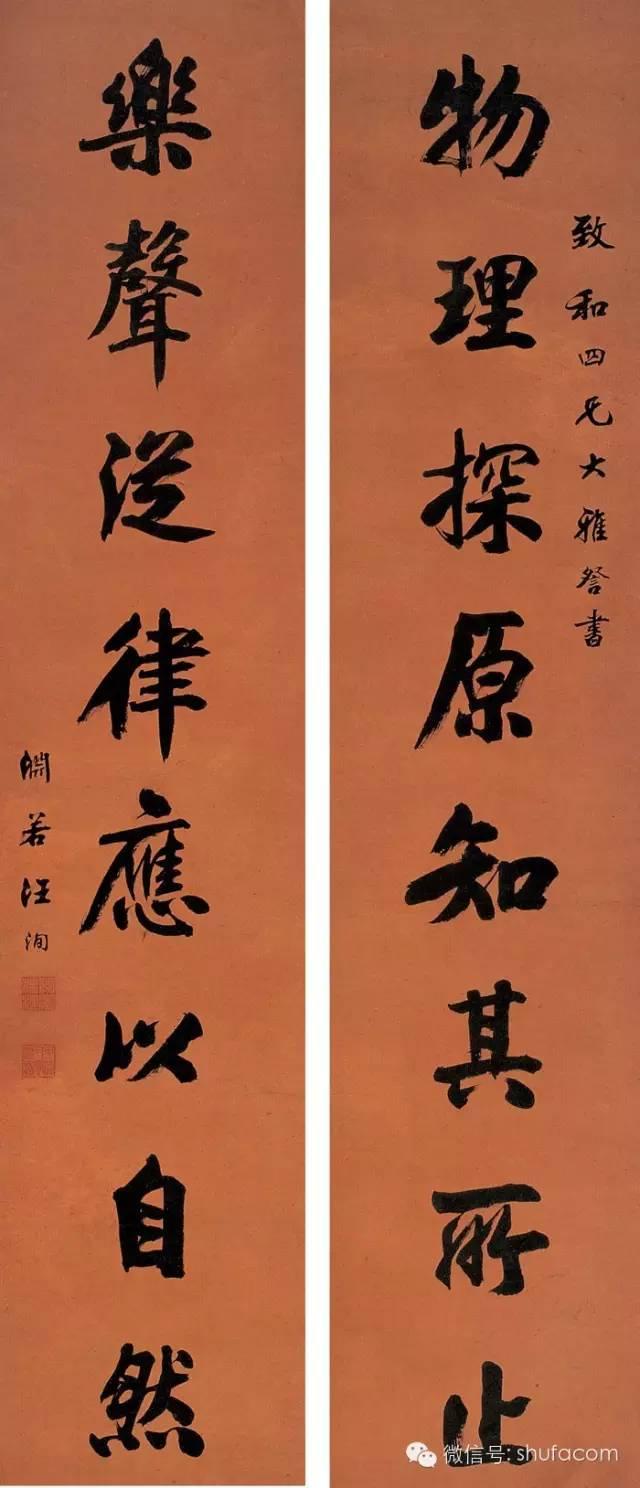 致和四兄大雅詧書
物理探原知其所止
樂聲從律應以自然
淵若汪洵
微信号: shufacom